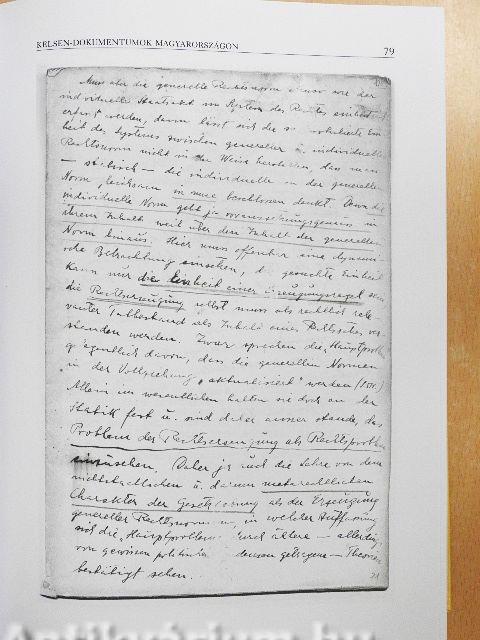 KELSEN-DOKUMENTUMOK MAGYARORSZÁGON
79
Muss aber die generelle Rechtsnorm ebenso wie der
individuelle Staatsakt im System des Rechtes einheitlich
erfasst werden, dann lässt sich die so Ein-
heit des Systems zwischen genereller u. individueller
Rechtsnorm nicht in der Weise herstellen, dass man
— statisch — die individuelle in der generellen
Norm beschlossen denkt. Denn die
individuelle Norm geht ja voraussetzungsgemäss in
ihrem Inhalt weit über den Inhalt der generellen
Norm hinaus. Hier muss offenbar eine dynami-
sche Betrachtung einsetzen, d. gesuchte Einheit
kann nur die Einheit einer Erzeugungsregel sein
die Rechtserzeugung selbst muss als rechtlich rele-
vanter Tatbestand als Inhalt eines Rechtssatzes ver-
standen werden. Zwar sprechen die „Hauptprobleme"
gelegentlich davon, dass die generellen Normen
in der Vollziehung „aktualisiert" werden
Allein im wesentlichen halten sie doch an der
Statik fest u. sind daher ausser stande, das
Problem der Rechtserzeugung als Rechtsproblem
einzusehen. Daher ja auch die Lehre von dem
nichtstaatlichen u. darum metarechtlichen
Charakter der Gesetzgebung als der Erzeugung
genereller Rechtsnormen, in welcher Auffassung
sich die „Hauptprobleme" durch ältere — allerdings
von gewissen politischen getragene — Theorien
bestätigt sehen.
Antikvárium.hu